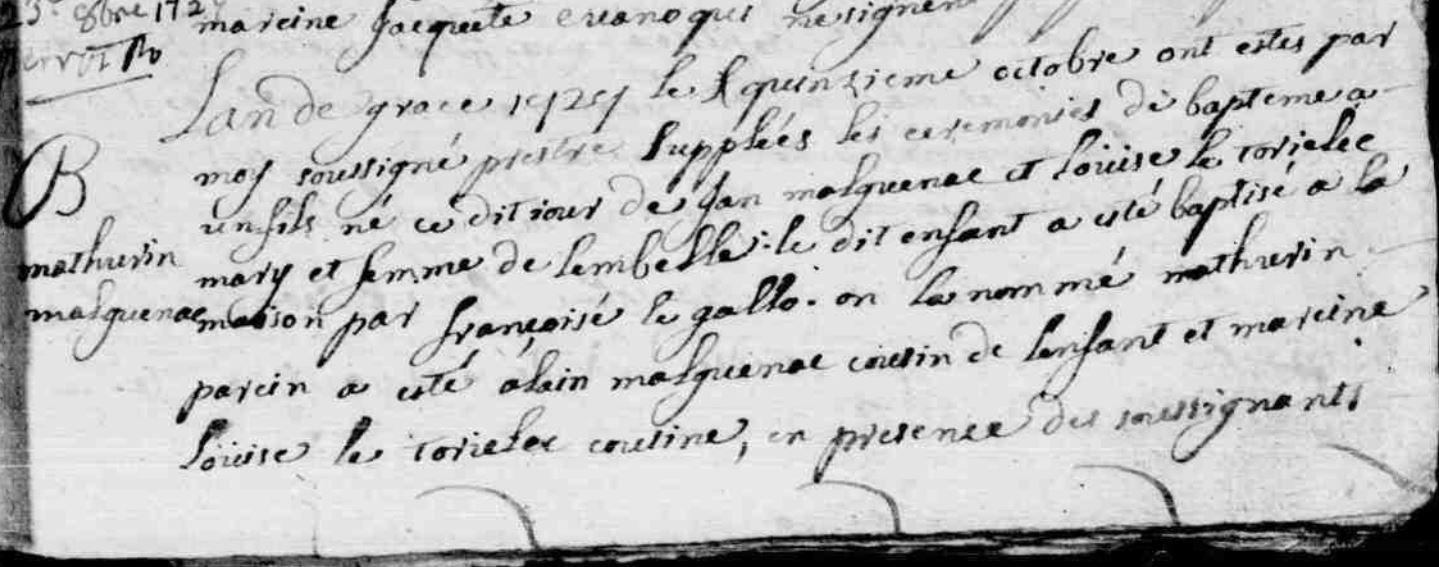 23e 8bre 172
mareine Jacquete qui ne signent
Lan de grace 1727 le quinzieme octobre ont estes par
moy soussigné prestre supplées les ceremonies de bapteme a
un fils né ce dit iour de Jan malguenac et Louise le torielec
B
mary et femme de lembelle: le dit enfant a esté baptisé a la
mathurin
maison par françoise le gallo. on la nommé mathurin
malguenac
parein a esté alain malguenac cousin de lenfant et mareine
Louise le torielec cousine, en presence des soussignants